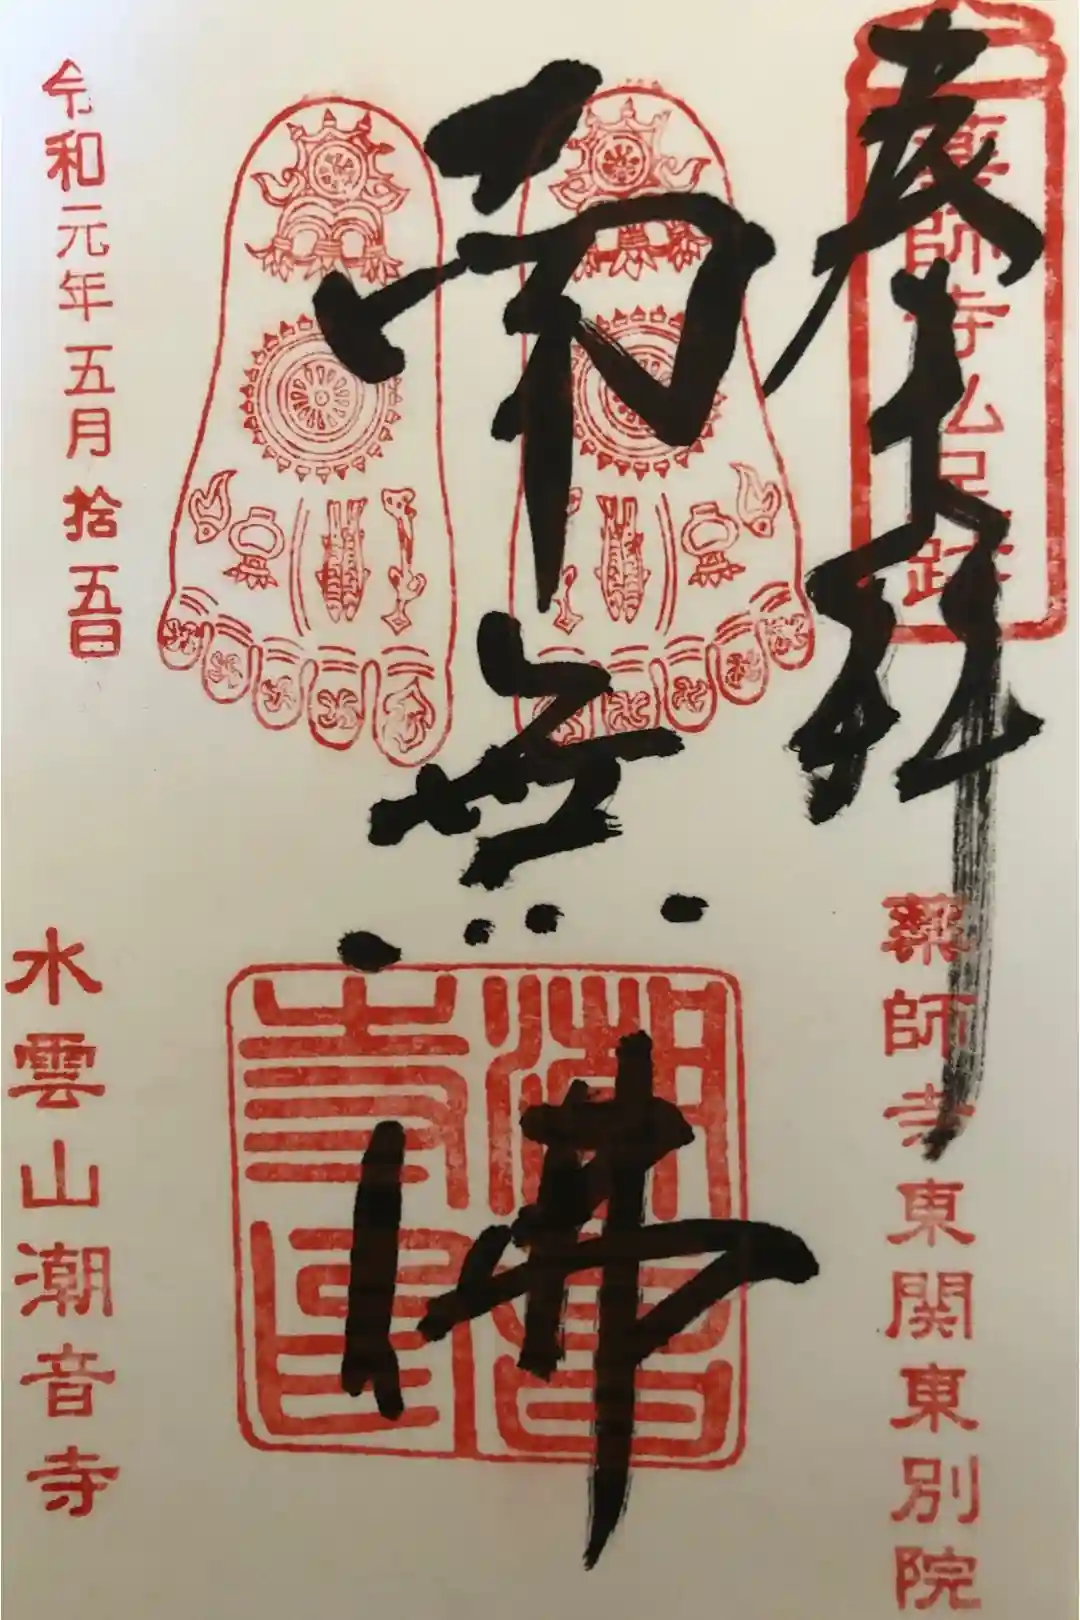 奉拝
薬師寺仏足跡
薬師寺東関東別院
南無佛
潮音寺印
令和元年五月拾五日
水雲山潮音寺